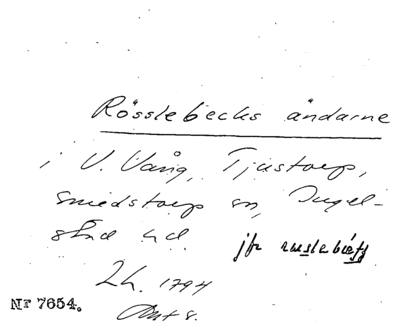 Rösslebecks ändarne
i V. Vång, Tjustorp,
Smedstorp sn, Ingel-
stad hd.
jfr russlebäck
Lh. 1794
Akt 8.
Nr 7654.